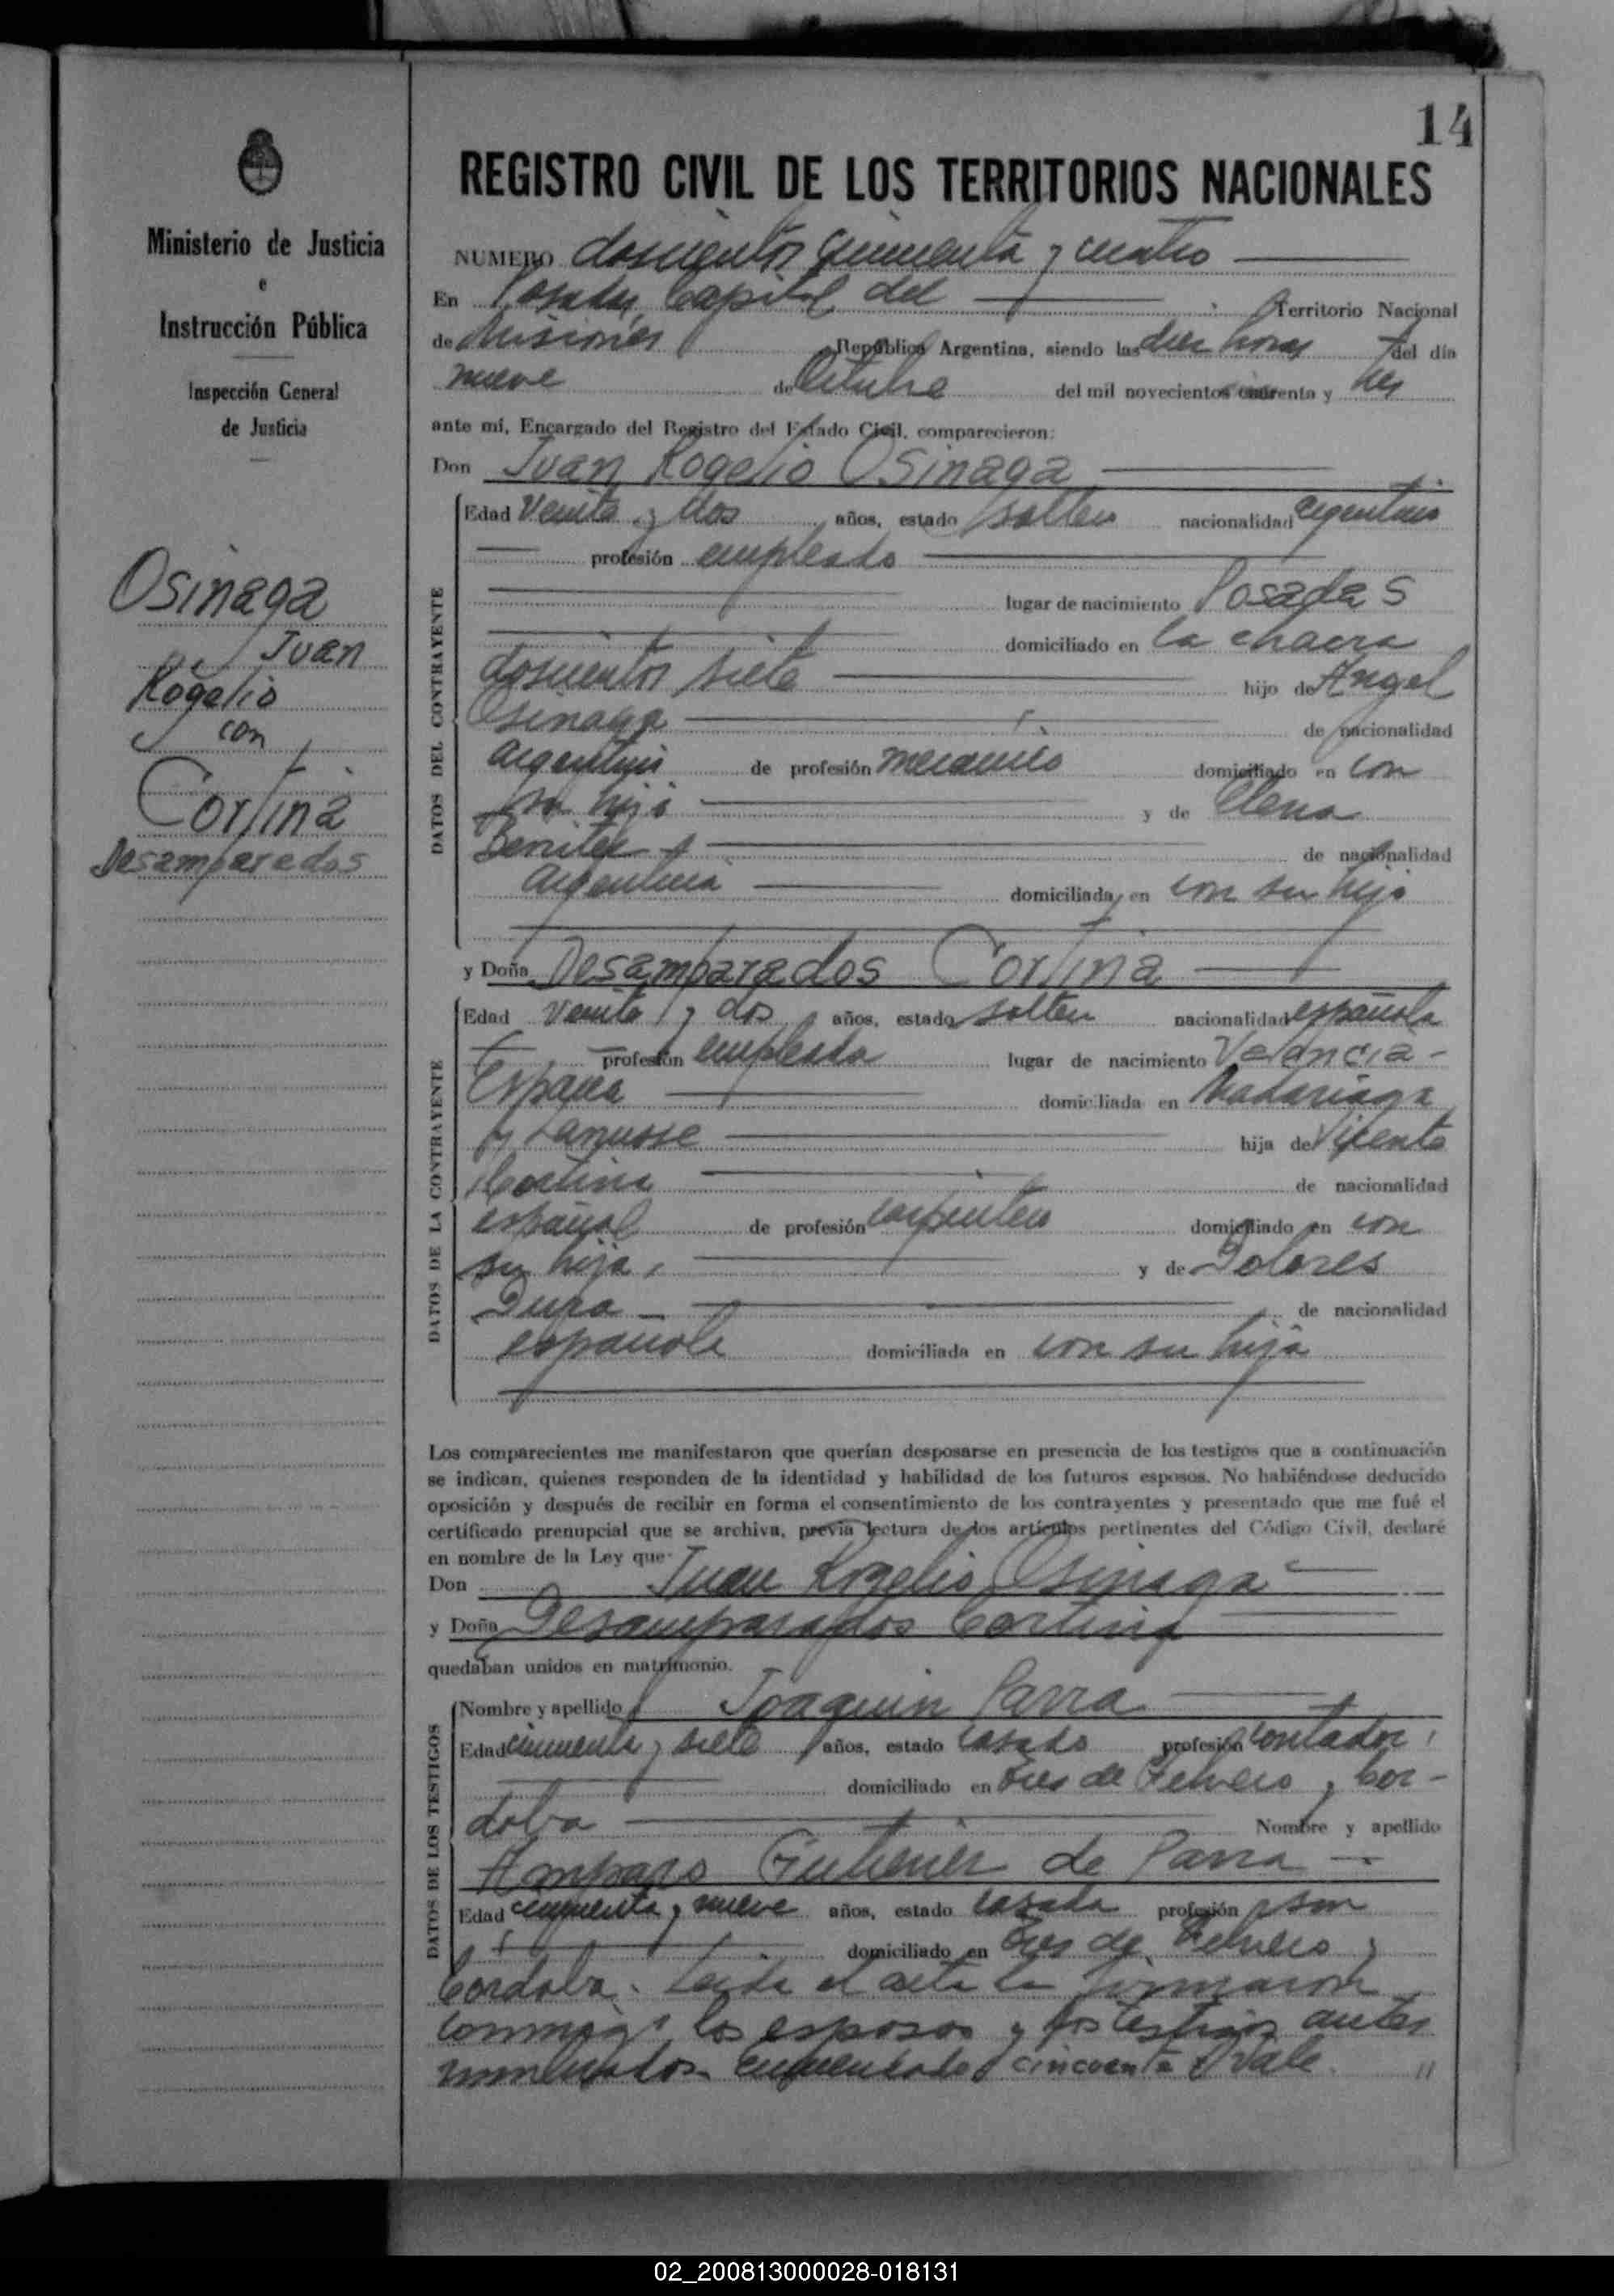 14
REGISTRO CIVIL DE LOS TERRITORIOS NACIONALES
Ministerio de Justicia
e
Instrucción Pública
Inspección General
de Justicia
Osinaga
Juan
Rogelio
con
Cortina
Desamparados
NUMERO doscientos cincuenta y cuatro
En Posadas, Capital del Territorio Nacional
de Misiones República Argentina, siendo las diez horas del día
nueve de Octubre del mil novecientos cincuenta y tres
ante mí, Encargado del Registro del Estado Civil, comparecieron:
Don Juan Rogelio Osinaga
DATOS DEL CONTRAYENTE
Edad veinte y dos años, estado soltero nacionalidad argentino
profesión empleado
lugar de nacimiento Posadas
domiciliado en la chacra
doscientos siete hijo de Angel
Osinaga de nacionalidad
argentino de profesión mecanico domiciliado en con
su hijo y de Elena
Benitez de nacionalidad
argentina domiciliada en con su hijo
y Doña Desamparados Cortina
DATOS DE LA CONTRAYENTE
Edad veinte y dos años, estado soltera nacionalidad española
profesión empleada lugar de nacimiento Valancia -
España domiciliada en Madariaga
y Lanusse hija de Vicente
Cortina de nacionalidad
español de profesión carpintero domiciliado en con
su hija, y de Dolores
Dura de nacionalidad
española domiciliada en con su hija
Los comparecientes me manifestaron que querían desposarse en presencia de los testigos que a continuación
se indican, quienes responden de la identidad y habilidad de los futuros esposos. No habiéndose deducido
oposición y después de recibir en forma el consentimiento de los contrayentes y presentado que me fué el
certificado prenupcial que se archiva, previa lectura de los artículos pertinentes del Código Civil, declaré
en nombre de la Ley que
Don Juan Rogelio Osinaga
y Doña Desamparados Cortina
quedaban unidos en matrimonio.
DATOS DE LOS TESTIGOS
Nombre y apellido Joaquin Parra
Edad cincuenta y siete años, estado casado profesión contador
domiciliado en tres de Febrero y Cor-
doba Nombre y apellido
Amparo Gutierrez de Parra
Edad cincuenta y nueve años, estado casada profesión
domiciliado en tres de Febrero y
Cordoba. Leida el acta la firmaron
conmigo los esposos y los testigos antes
nombrados. Enmendado cincuenta Vale. "
02_200813000028-018131